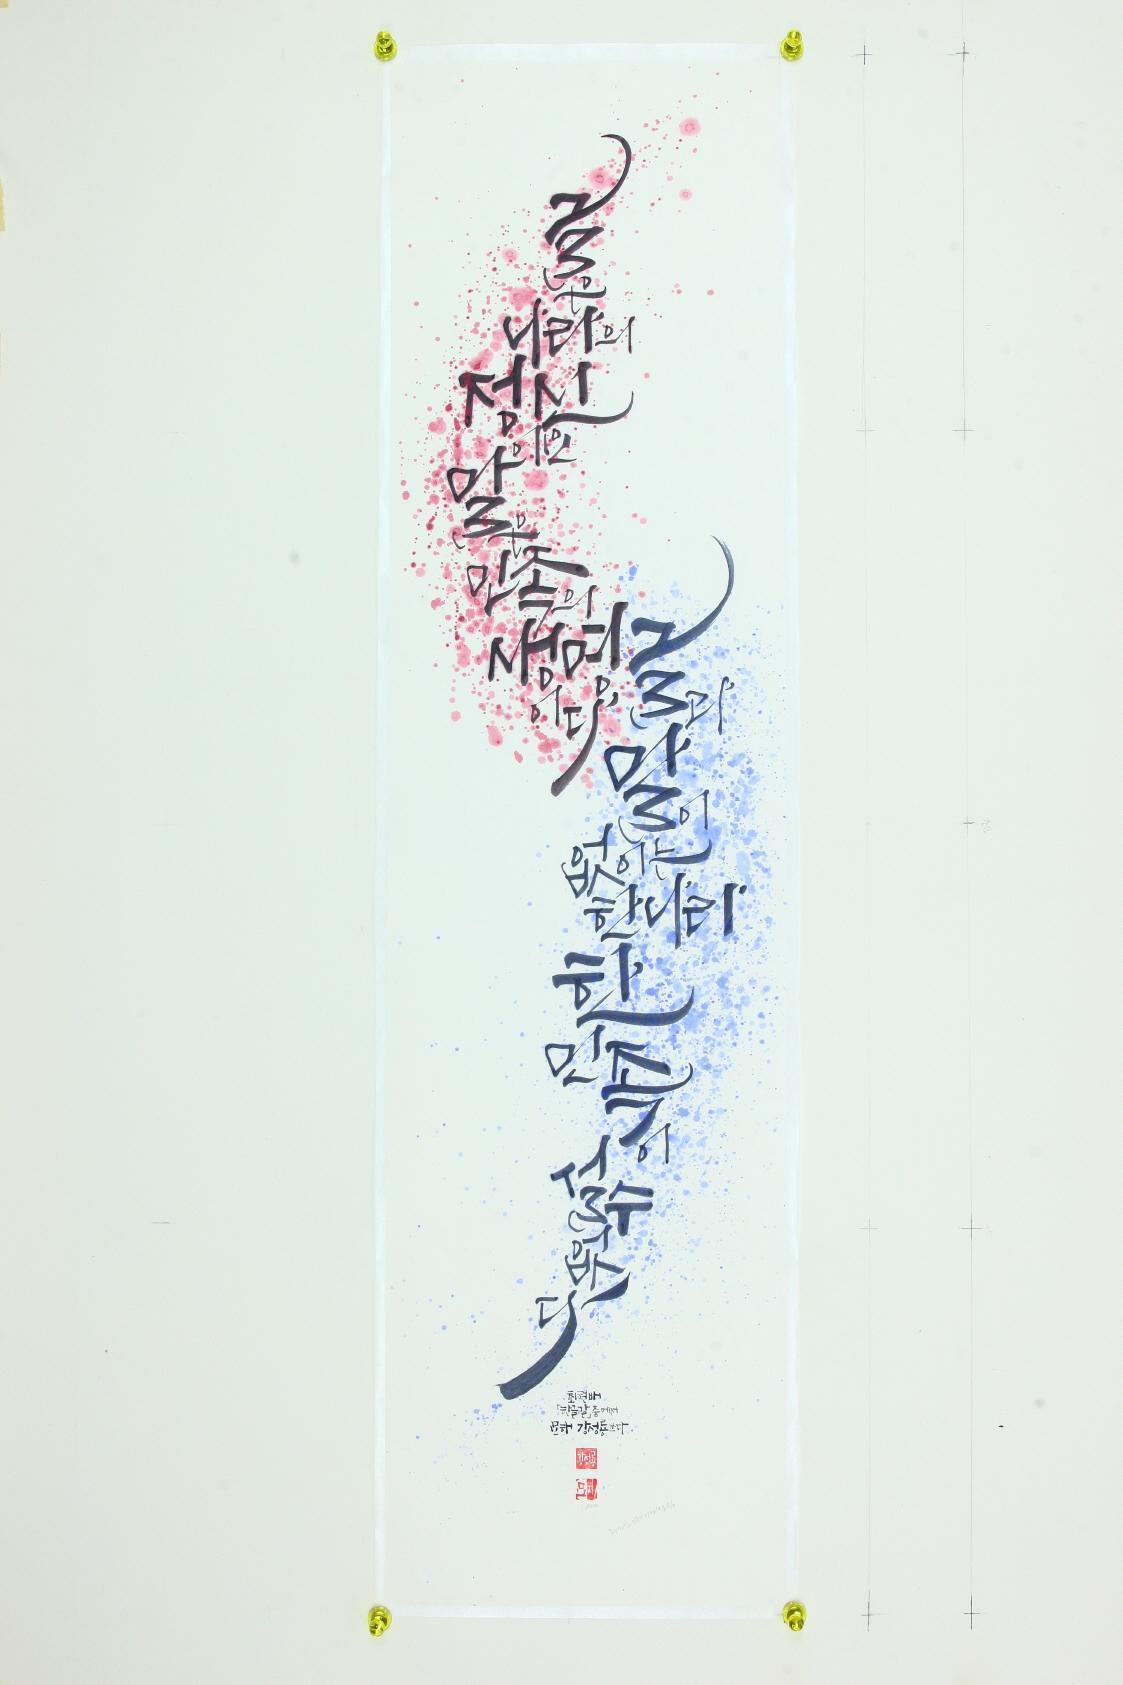 글은
나라의
정신
말은
민족의
생명
이다
글과
말이
없이는
한 나라
한
민족이
설 수
없다
최현배
「한글갈」중에서
강정룡 쓰다